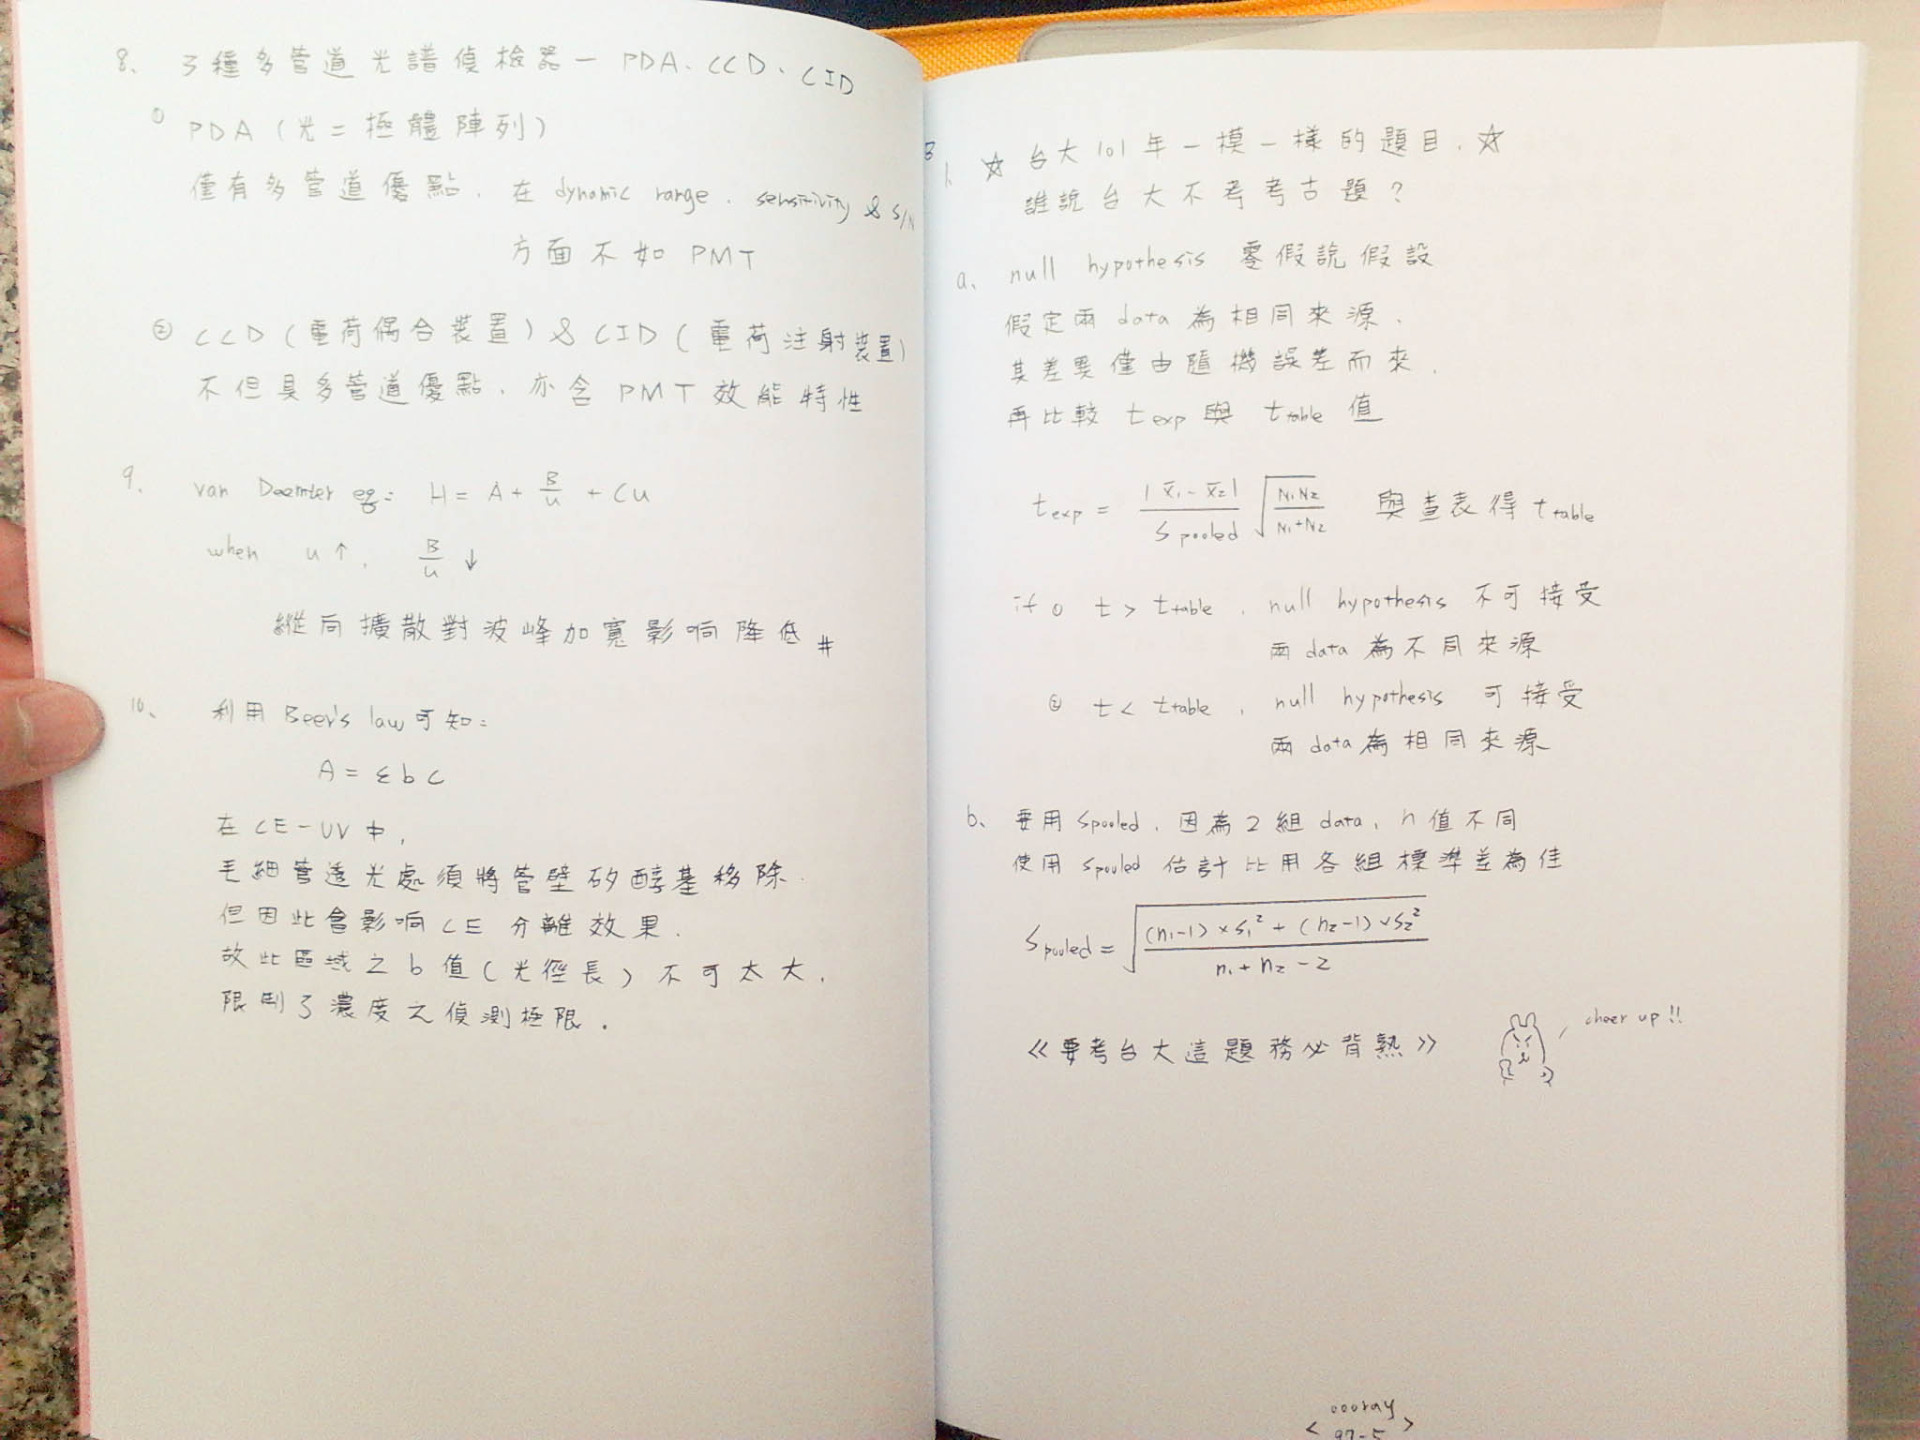 8、 3種多管道光譜偵檢器 — PDA、CCD、CID
① PDA (光二極體陣列)
僅有多管道優點, 在 dynamic range . sensitivity & S/N
方面不如 PMT
② CCD (電荷偶合裝置) & CID (電荷注射裝置)
不但具多管道優點, 亦含 PMT 效能特性
9、 van Deemter eq: H = A + B/u + Cu
when u ↑ , B/u ↓
縱向擴散對波峰加寬影响降低 #
10、 利用 Beer's law 可知:
A = εbc
在 CE-UV 中,
毛細管透光處須將管壁矽醇基移除.
但因此會影响 CE 分離效果.
故此區域之 b 值 (光徑長) 不可太大,
限制了濃度之偵測極限.
B
1、 ☆ 台大101年一模一樣的題目. ☆
誰說台大不考考古題?
a、 null hypothesis 零假說假設
假定兩 data 為相同來源,
其差異僅由隨機誤差而來,
再比較 t exp 與 t table 值
t exp = |x̄₁ - x̄₂| / S pooled √(N₁N₂ / N₁+N₂) 與查表得 t table
if ① t > t table , null hypothesis 不可接受
兩 data 為不同來源
② t < t table , null hypothesis 可接受
兩 data 為相同來源
b、 要用 Spooled, 因為 2 組 data, n 值不同
使用 Spooled 估計比用各組標準差為佳
S pooled = √((n₁-1)×S₁² + (n₂-1)×S₂² / n₁+n₂-2)
《要考台大這題務必背熟》
cheer up !!
oooray
< 97-5 >